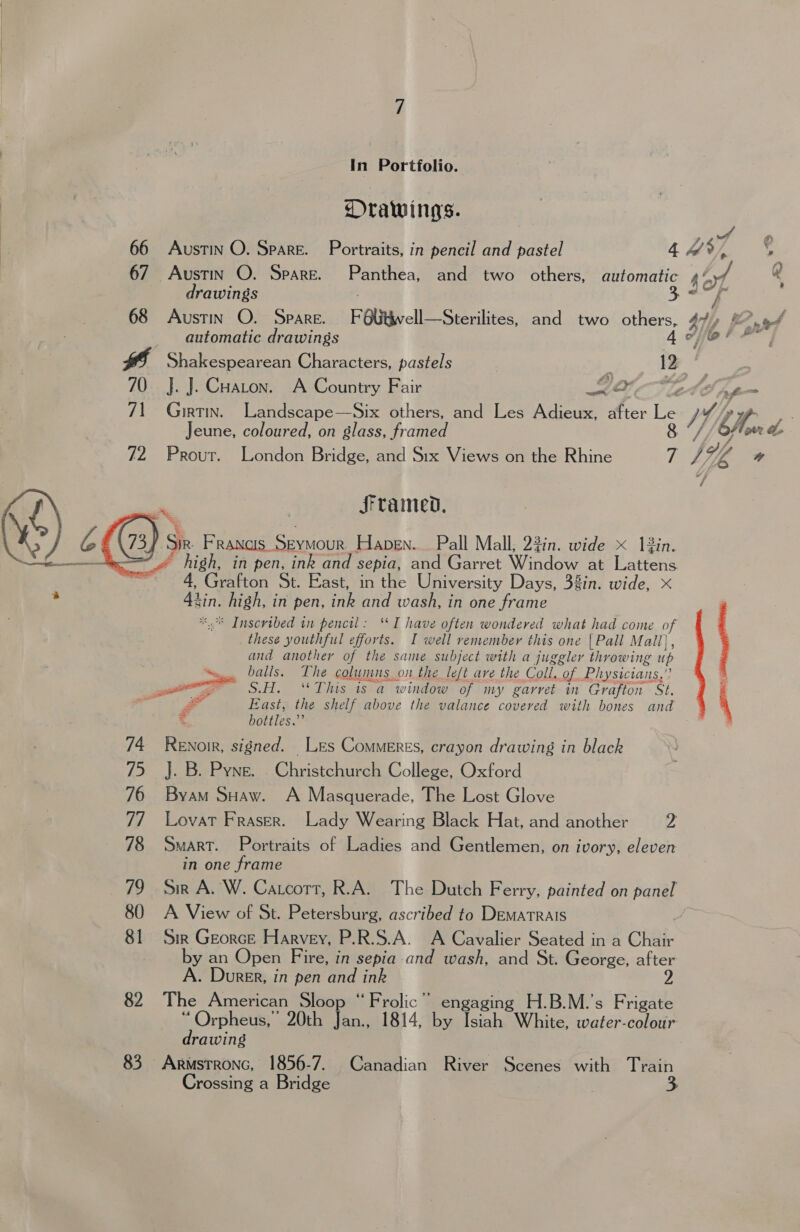 7
In Portfolio.
Drawings.
66 Austin O. Spare. Portraits, in pencil and pastel 4
67 Austin O. Spare. Panthea, and two others, automatic
drawings 3
68 Austin O. Spare. Well—Sterilites, and two others,
automatic drawings 4
Shakespearean Characters, pastels 12
70 J. J. Chaton. A Country Fair
71 Girtin. Landscape—Six others, and Les Adieux, after Le
Jeune, coloured, on glass, framed 8
72 Prout. London Bridge, and Six Views on the Rhine 7
Framed.
73 Sir Francis Seymour Haden. Pall Mall, 2¾in. wide × 1¾in.
high, in pen, ink and sepia, and Garret Window at Lattens
4, Grafton St. East, in the University Days, 3⅜in. wide, ×
4½in. high, in pen, ink and wash, in one frame
*** Inscribed in pencil: “I have often wondered what had come of
these youthful efforts. I well remember this one [Pall Mall],
and another of the same subject with a juggler throwing up
balls. The columns on the left are the Coll. of Physicians,”
S.H. “This is a window of my garret in Grafton St.
East, the shelf above the valance covered with bones and
bottles.”
74 Renoir, signed. Les Commeres, crayon drawing in black
75 J. B. Pyne. Christchurch College, Oxford
76 Byam Shaw. A Masquerade, The Lost Glove
77 Lovat Fraser. Lady Wearing Black Hat, and another 2
78 Smart. Portraits of Ladies and Gentlemen, on ivory, eleven
in one frame
79 Sir A. W. Calcott, R.A. The Dutch Ferry, painted on panel
80 A View of St. Petersburg, ascribed to Dematrais
81 Sir George Harvey, P.R.S.A. A Cavalier Seated in a Chair
by an Open Fire, in sepia and wash, and St. George, after
A. Durer, in pen and ink 2
82 The American Sloop “Frolic” engaging H.B.M.'s Frigate
“Orpheus,” 20th Jan., 1814, by Isiah White, water-colour
drawing
83 Armstrong, 1856-7. Canadian River Scenes with Train
Crossing a Bridge 3